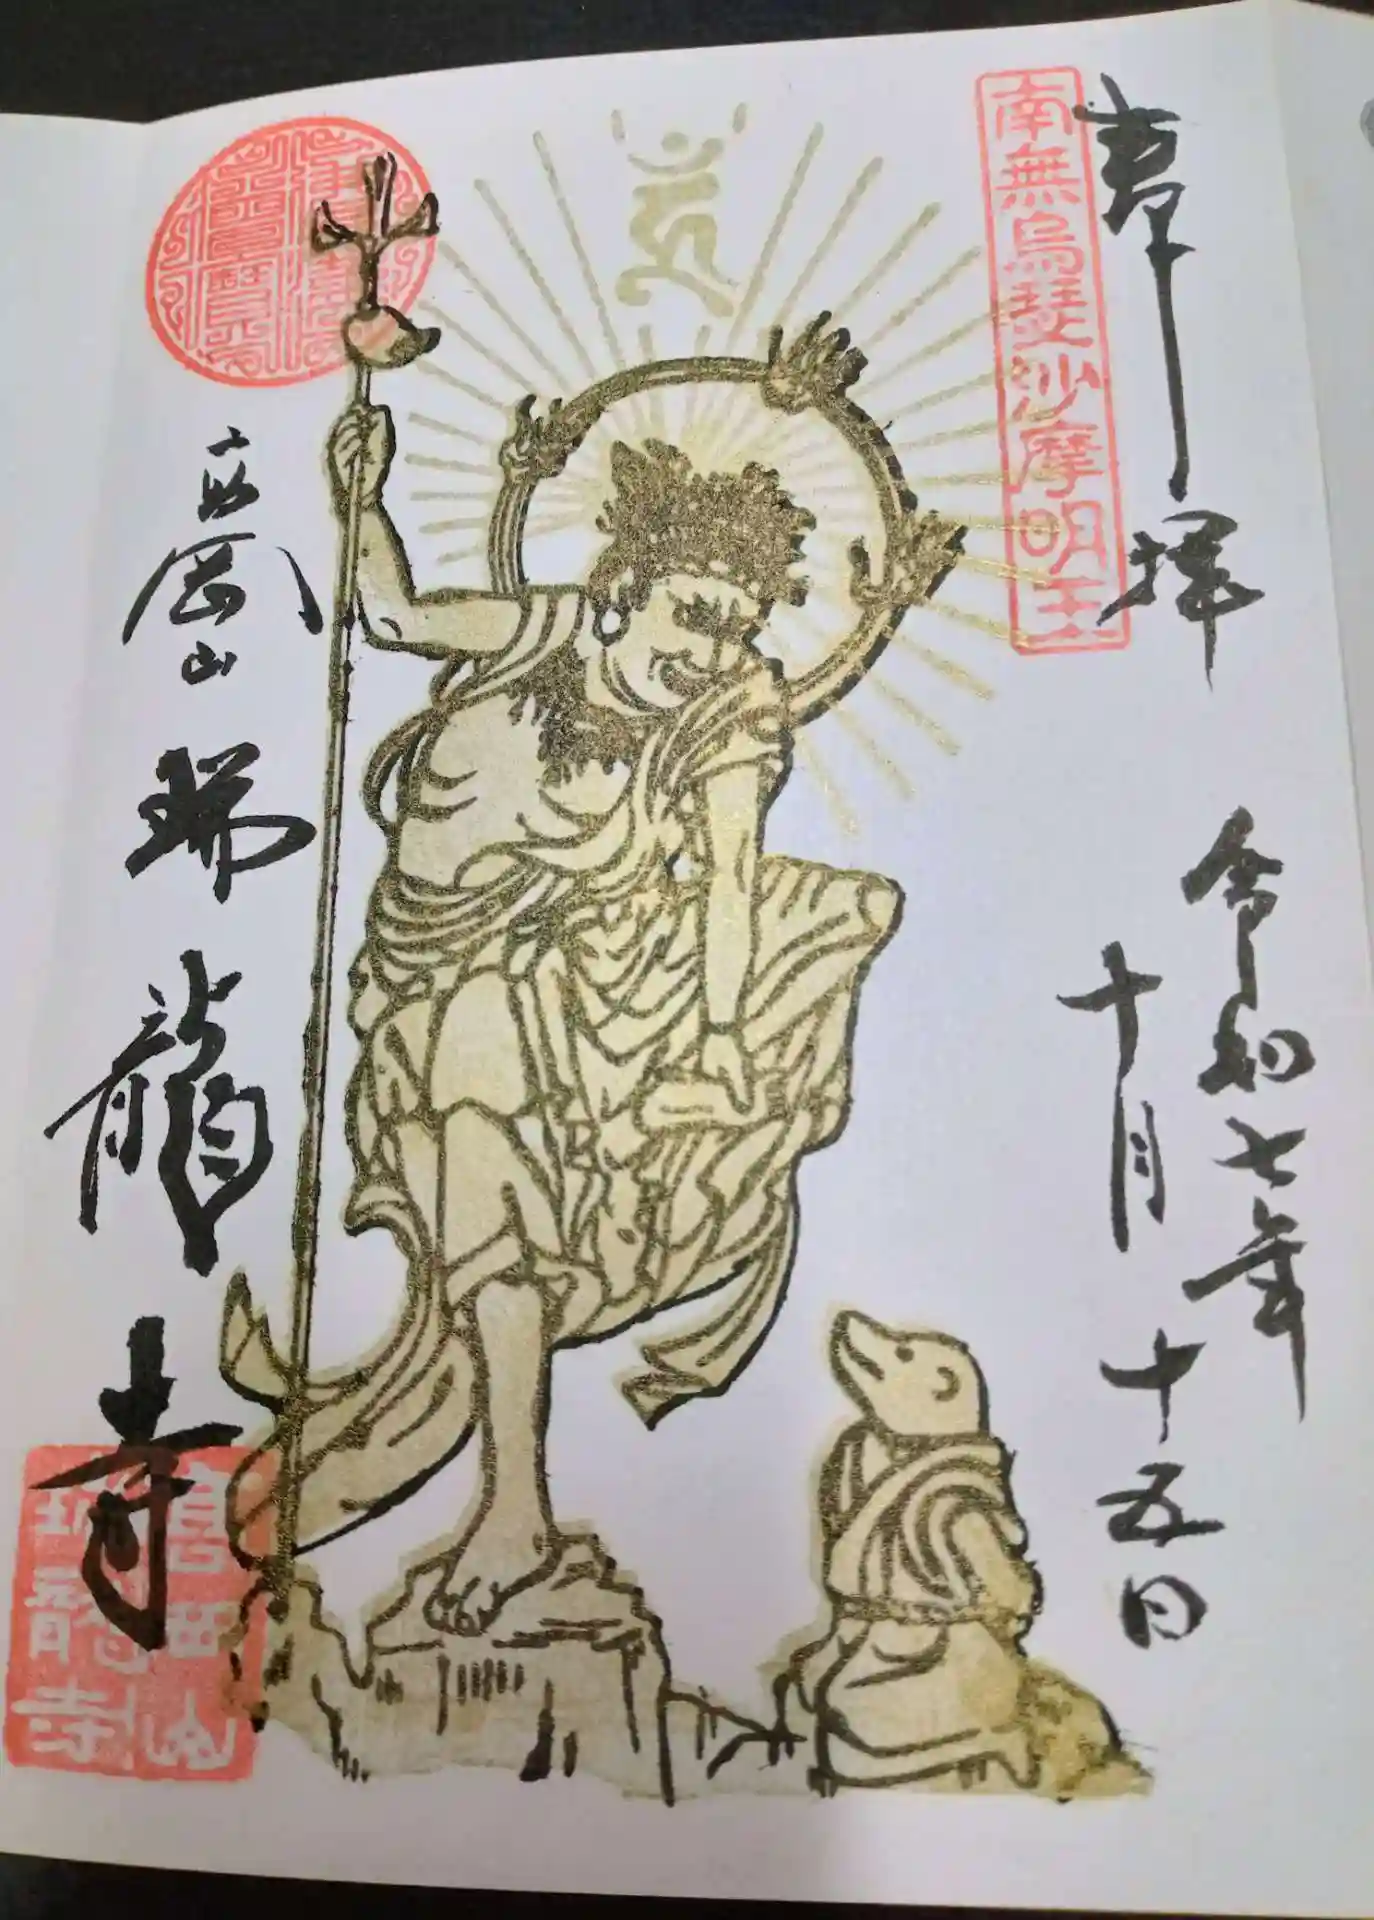 奉拝
南無烏芻沙摩明王
令和七年
十月十五日
高岡山
瑞龍寺
高岡山
瑞龍寺